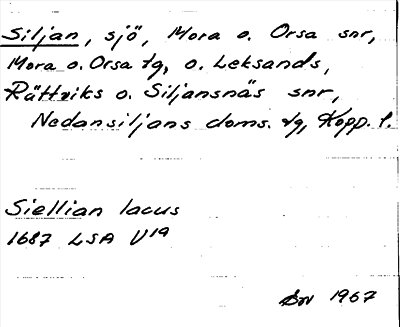 Siljan, sjö, Mora o. Orsa snr,
Mora o. Orsa tg, o. Leksands,
Rättviks o. Siljansnäs snr,
Nedansiljans doms. tg, Kopp. l.
Siellian lacus
1687 LSA U19
1967